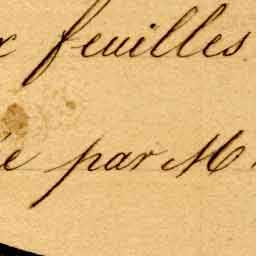 x feuilles
ée par M.